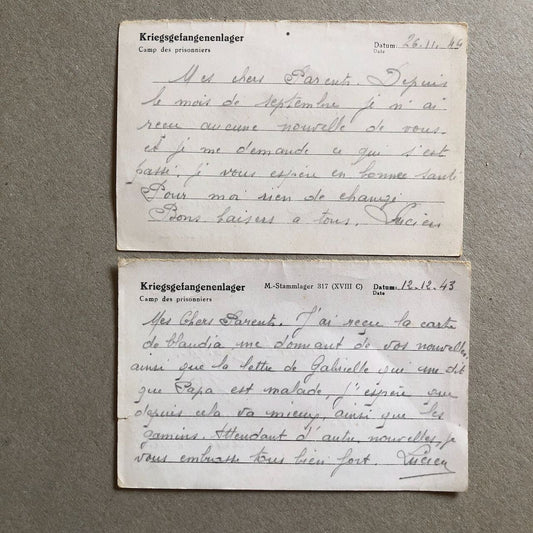 Kriegsgefangenenlager
Camp des prisonniers
Datum 26.11.44
Date
Mes chers Parents. Depuis
le mois de septembre je n'ai
reçu aucune nouvelle de vous
et je me demande ce qui s'est
passé. je vous espère en bonne santé
Pour moi rien de changé
Bons baisers a tous. Lucien
Kriegsgefangenenlager
M.-Stammlager 317 (XVIII C)
Datum 12.12.43
Camp des prisonniers
Date
Mes Chers Parents. J'ai reçu la carte
de Claudia me donnant de vos nouvelles,
ainsi que la lettre de Gabrielle qui me dit
que Papa est malade, j'espère que
depuis cela va mieux, ainsi que les
gamins. Attendant d'autre nouvelles, je
vous embrasse tous bien fort. Lucien